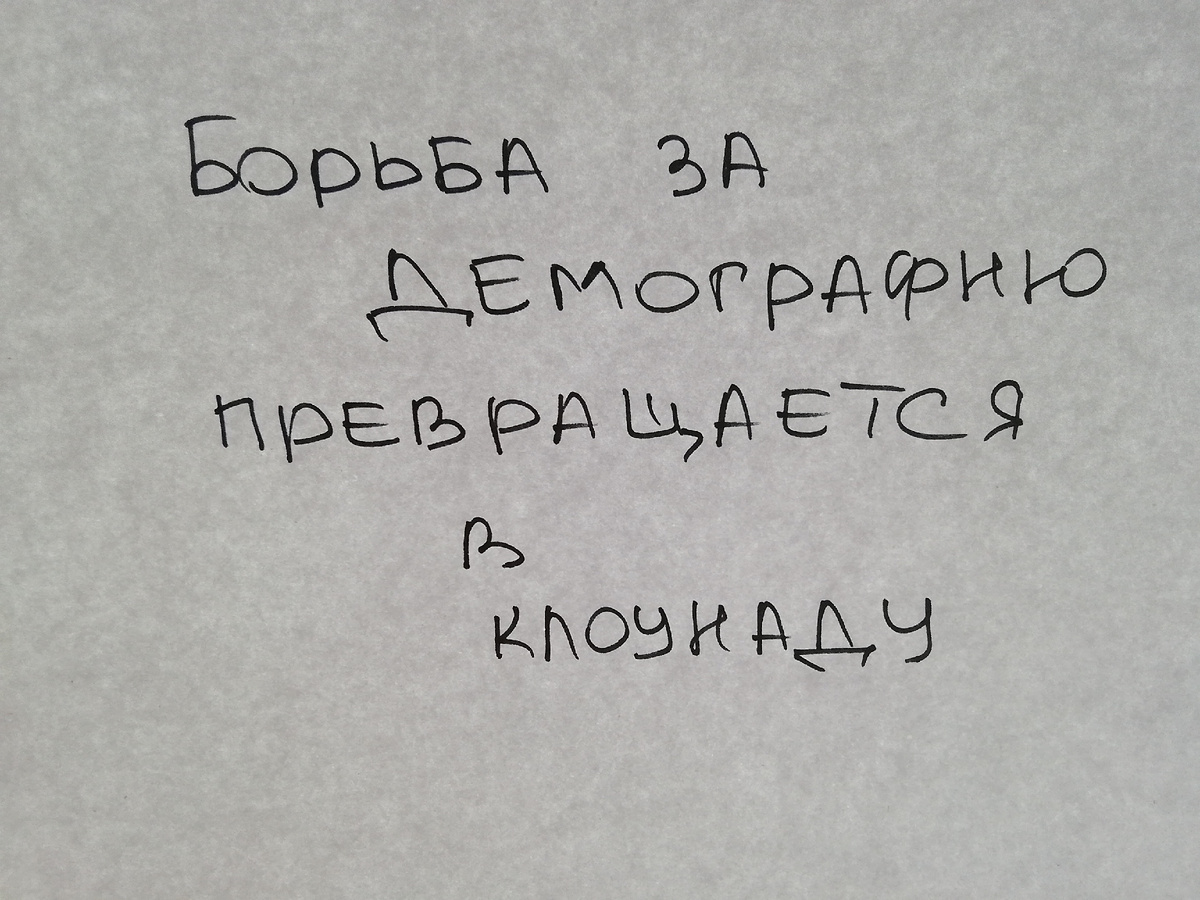 БОРЬБА ЗА
ДЕМОГРАФИЮ
ПРЕВРАЩАЕТСЯ
В
КЛОУНАДУ